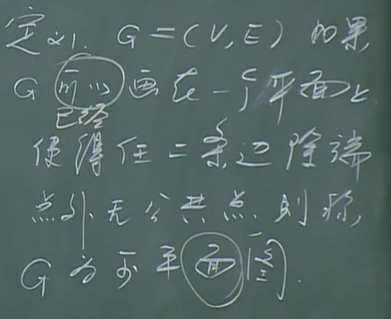 定义1. G=(V,E) 如果
G 可以画在一个平面上
已经
使得任二条边除端
点外无公共点则称
G 为可平面图.